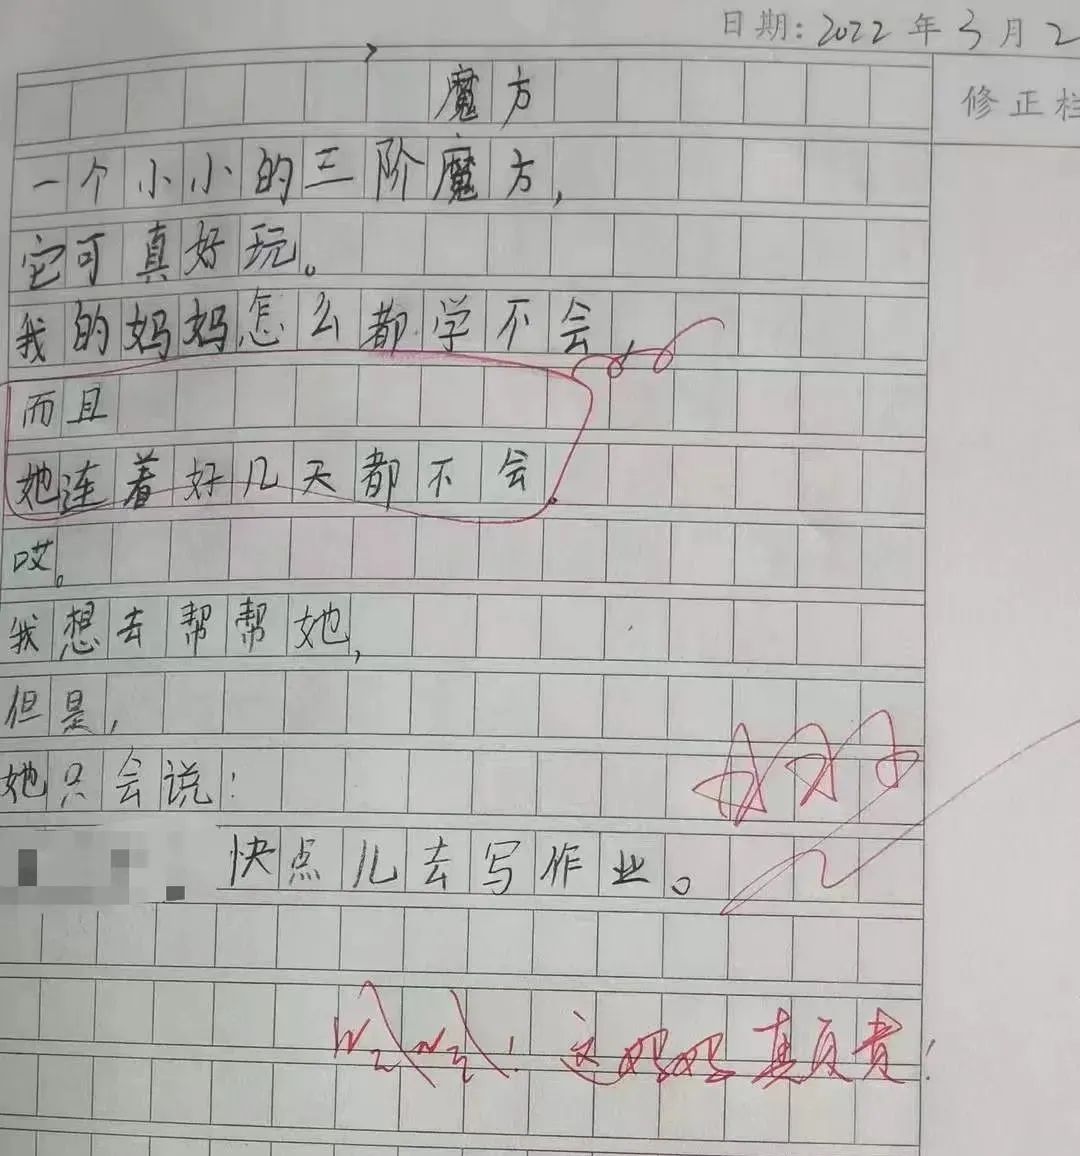 日期: 2022 年 3 月 2
修正栏
魔方
一个小小的三阶魔方,
它可真好玩。
我的妈妈怎么都学不会,
而且
她连着好几天都不会.
哎。
我想去帮帮她,
但是,
她只会说:
快点儿去写作业。
哈哈! 这妈妈真负责!